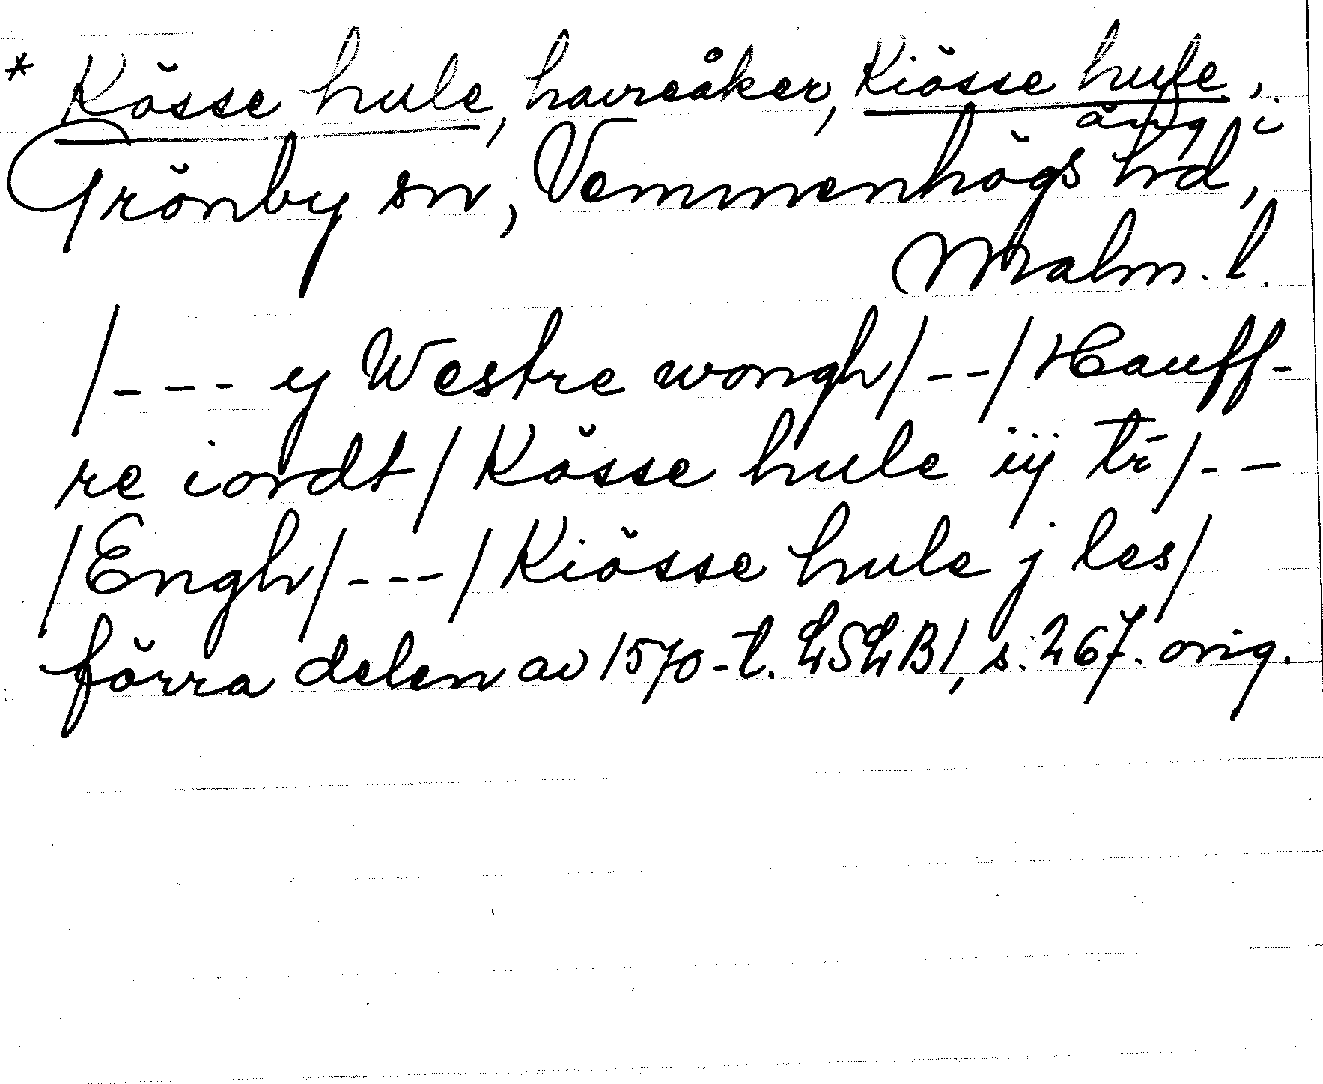 * Kösse hule, havreåker, Kiösse hule,
äng i
Grönby sn, Vemmenhögs hd,
Malm. l.
/--- y Westre wongh/--/Hauff-
re iordt/Kösse hule iij tr̄/--
/Engh/---/Kiösse hule j les/
förra delen av 1570-t. LSLB1, s. 267. orig.